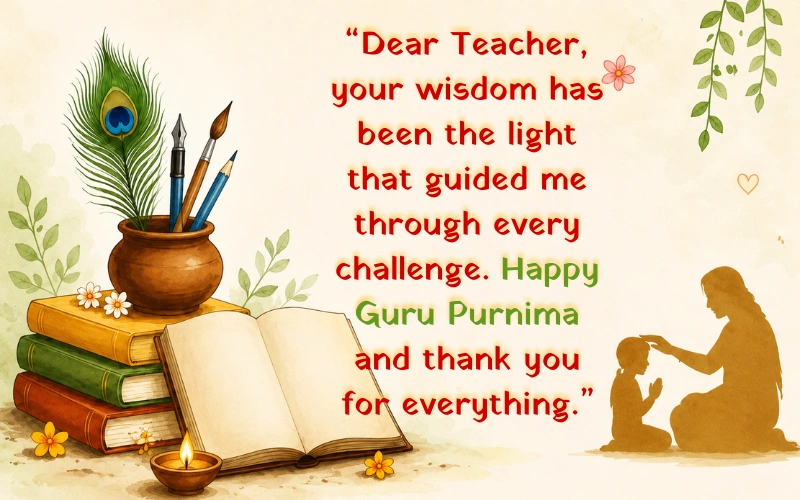 “Dear Teacher,
your wisdom has
been the light
that guided me
through every
challenge. Happy
Guru Purnima
and thank you
for everything.”